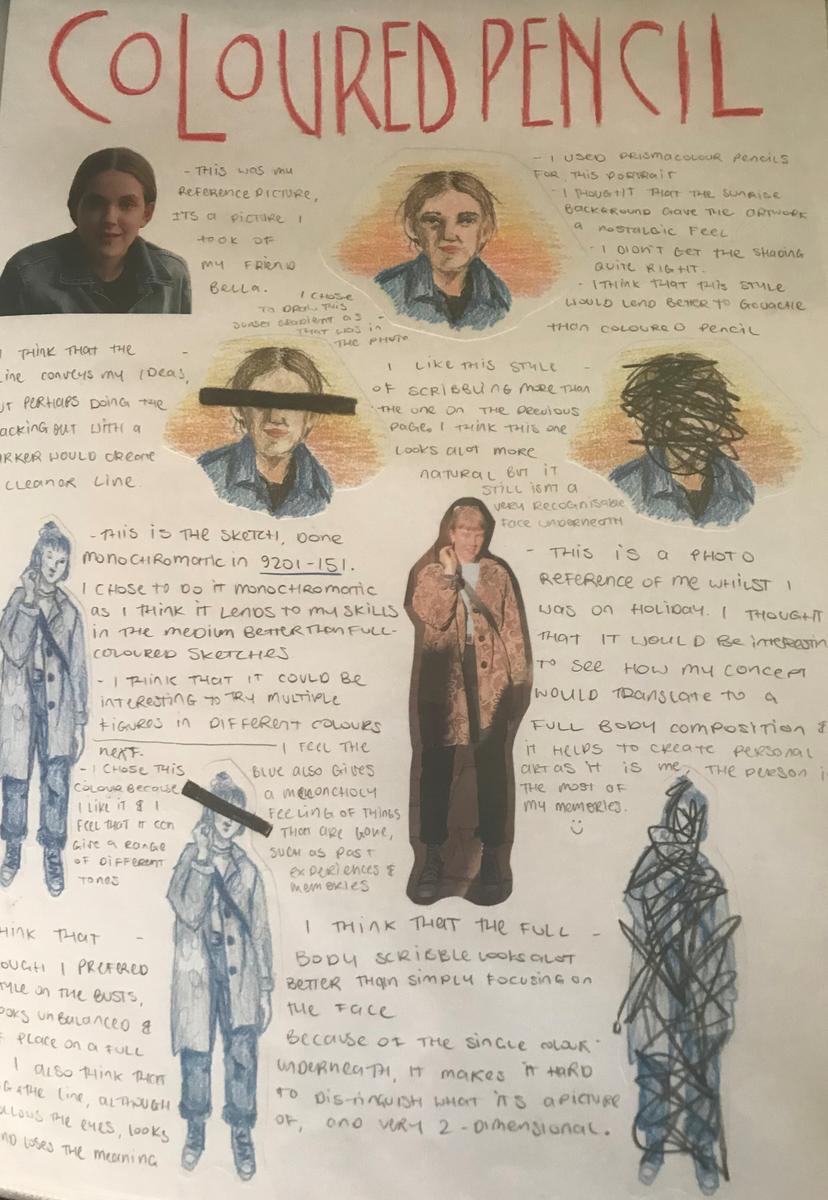 COLOURED PENCIL
- THIS WAS MY
REFERENCE PICTURE,
ITS A PICTURE I
TOOK OF
MY FRIEND
BELLA.
- I USED PRISMACOLOUR PENCILS
FOR THIS PORTRAIT
- I THOUGHT THAT THE SUNRISE
BACKGROUND GAVE THE ARTWORK
A NOSTALGIC FEEL
- I DIDN'T GET THE SHADING
QUITE RIGHT.
- I THINK THAT THIS STYLE
WOULD LEND BETTER TO GOUACHE
THAN COLOURED PENCIL
I CHOSE
TO DRAW THIS
SUNSET GRADIENT AS -
THAT WAS IN
THE PHOTO
I THINK THAT THE -
LINE CONVEYS MY IDEAS,
UT PERHAPS DOING THE
ACKING OUT WITH A
RKER WOULD CREATE
CLEANOR LINE.
I LIKE THIS STYLE -
OF SCRIBBLING MORE THAN
THE ONE ON THE PREVIOUS
PAGE. I THINK THIS ONE
LOOKS ALOT MORE
NATURAL BUT IT
STILL ISNT A
VERY RECOGNISABLE
FACE UNDERNEATH
- THIS IS THE SKETCH, DONE
MONOCHROMATIC IN 9201-151.
I CHOSE TO DO IT MONOCHROMATIC
AS I THINK IT LENDS TO MY SKILLS
IN THE MEDIUM BETTER THAN FULL-
COLOURED SKETCHES
- I THINK THAT IT COULD BE
INTERESTING TO TRY MULTIPLE
FIGURES IN DIFFERENT COLOURS
NEXT.
- THIS IS A PHOTO
REFERENCE OF ME WHILST I
WAS ON HOLIDAY. I THOUGHT
THAT IT WOULD BE INTERESTIN
TO SEE HOW MY CONCEPT
WOULD TRANSLATE TO A
FULL BODY COMPOSITION &
IT HELPS TO CREATE PERSONAL
ART AS IT IS ME, THE PERSON I
THE MOST OF
MY MEMORIES.
- I CHOSE THIS
COLOUR BECAUSE
I LIKE IT & I
FEEL THAT IT CAN
GIVE A RANGE
OF DIFFERENT
TONES
- I FEEL THE
BLUE ALSO GIVES
A MELONCHOLY
FEELING OF THINGS
THAT ARE GONE,
SUCH AS PAST
EXPERIENCES &
MEMORIES
HINK THAT -
OUGH I PREFERED
TYLE ON THE BUSTS,
OOKS UNBALANCED &
F PLACE ON A FULL
I ALSO THINK THAT
THE LINE, ALTHOUGH
THE EYES, LOOKS
ND LOSES THE MEANING
I THINK THAT THE FULL -
BODY SCRIBBLE LOOKS ALOT
BETTER THAN SIMPLY FOCUSING ON
THE FACE
BECAUSE OF THE SINGLE COLOUR
UNDERNEATH, IT MAKES IT HARD
TO DISTINGUISH WHAT ITS A PICTURE
OF, AND VERY 2-DIMENSIONAL.